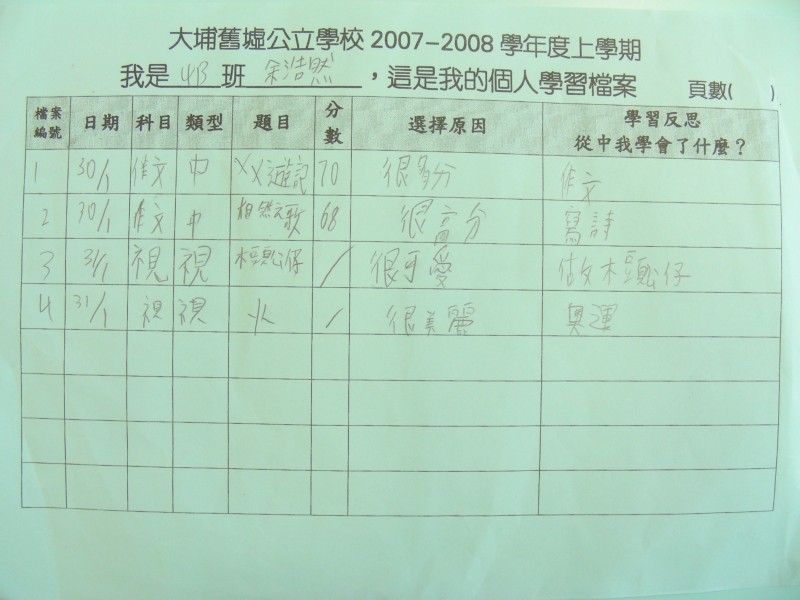 大埔舊墟公立學校 2007-2008 學年度上學期
我是 4B 班 余浩然 ，這是我的個人學習檔案 頁數( )
檔案編號 日期 科目 類型 題目 分數 選擇原因 學習反思 從中我學會了什麼？
1 30/1 作文 中 XX遊記 70 很多分 作文
2 30/1 作文 中 自然之歌 68 很高分 寫詩
3 31/1 視 視 木頭公仔 / 很可愛 做木頭公仔
4 31/1 視 視 火 / 很美麗 奧運